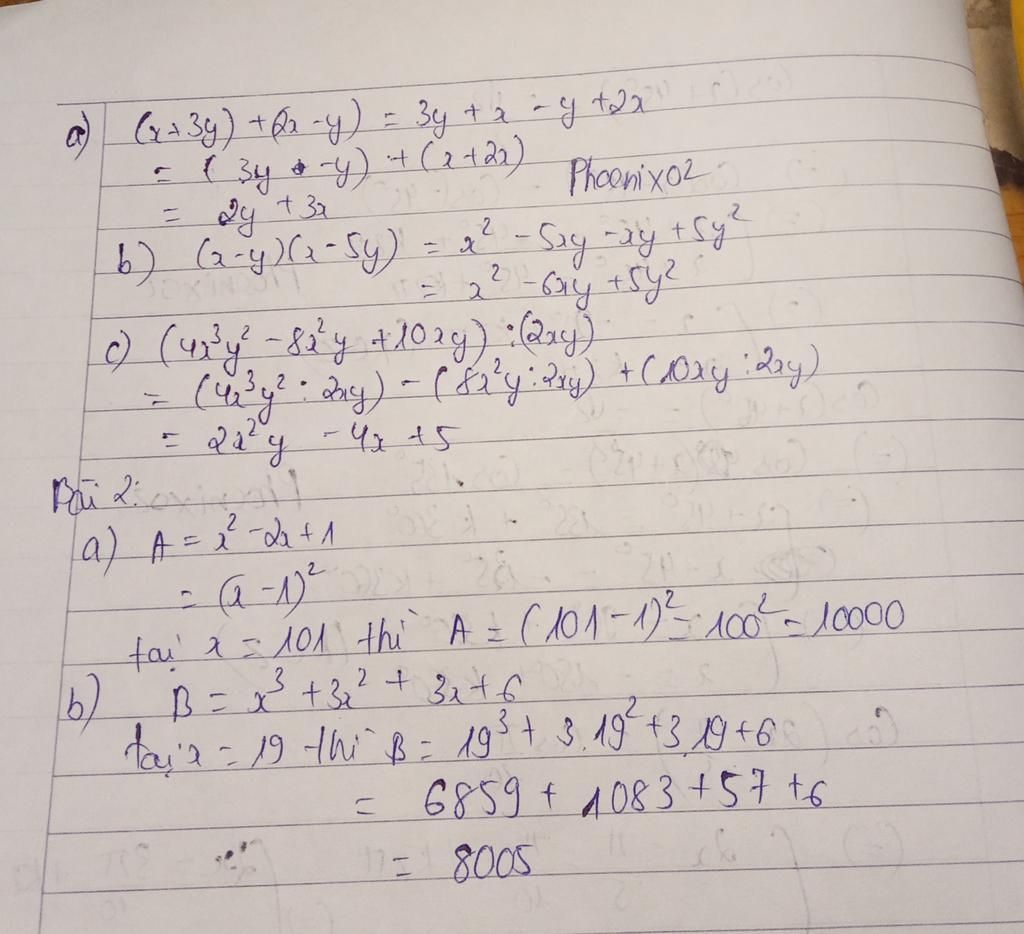 a) (x+3y) + (2x-y) = 3y + x - y + 2x
= (3y - y) + (x+2x)
PhoenixO2
= 2y + 3x
b) (x-y)(x-5y) = x² - 5xy - xy + 5y²
= x² - 6xy + 5y²
c) (4x³y² - 8x²y + 10xy) : (2xy)
= (4x³y² : 2xy) - (8x²y : 2xy) + (10xy : 2xy)
= 2x²y - 4x + 5
Bài 2:
a) A = x² - 2x + 1
= (x - 1)²
tại x = 101 thì A = (101-1)² = 100² = 10000
b) B = x³ + 3x² + 3x + 6
tại x = 19 thì B = 19³ + 3.19² + 3.19 + 6
= 6859 + 1083 + 57 + 6
= 8005